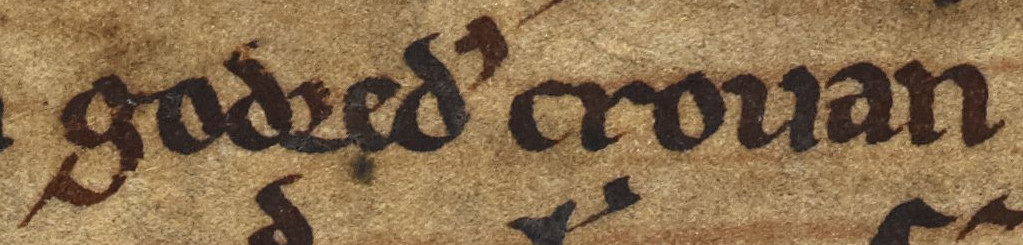 godred' crouan